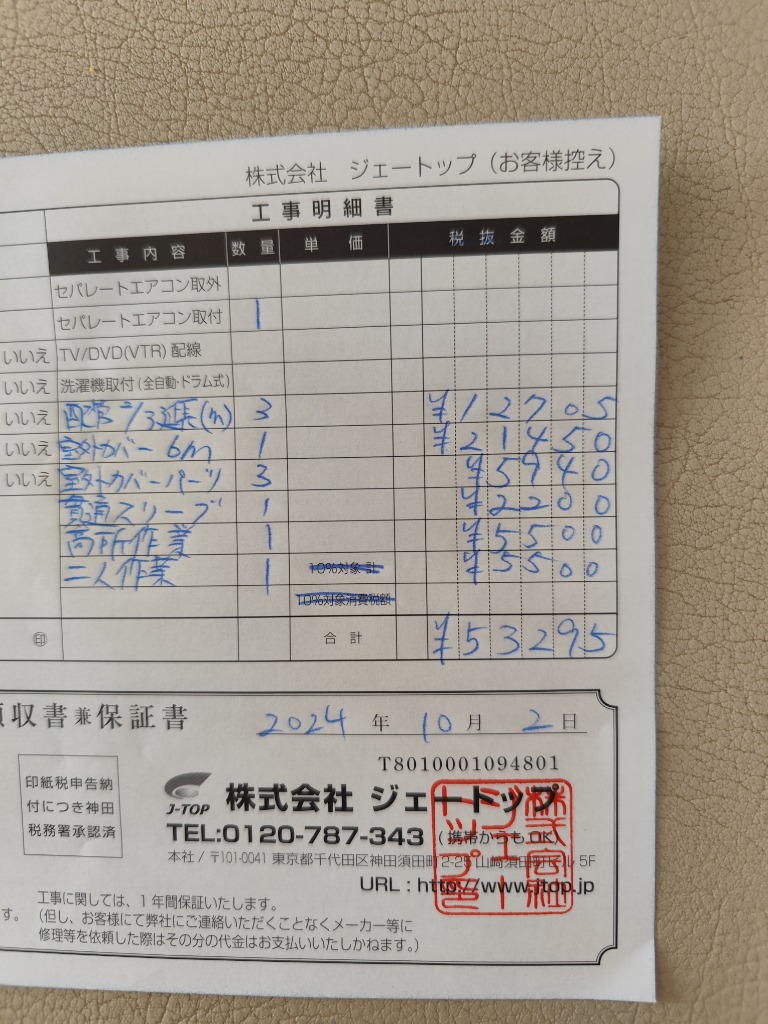 株式会社 ジェートップ（お客様控え）
工事明細書
工事内容 数量 単価 税抜金額
セパレートエアコン取外
セパレートエアコン取付 1
いいえ TV/DVD(VTR)配線
いいえ 洗濯機取付(全自動・ドラム式)
いいえ 配管2/3延長(m) 3 ¥12705
いいえ 室外カバー6m 1 ¥21450
いいえ 室外カバーパーツ 3 ¥5940
貫通スリーブ 1 ¥2200
高所作業 1 ¥5500
二人作業 1 10%対象 計 ¥5500
10%対象消費税額
印 合計 ¥53295
収書兼保証書 2024年10月2日
T8010001094801
印紙税申告納
付につき神田
税務署承認済
J-TOP 株式会社 ジェートップ
TEL:0120-787-343（携帯からもOK）
本社／〒101-0041 東京都千代田区神田須田町2-25 山崎須田町ビル 5F
URL : http://www.jtop.jp
工事に関しては、1年間保証いたします。
す。（但し、お客様にて弊社にご連絡いただくことなくメーカー等に
修理等を依頼した際はその分の代金はお支払いいたしかねます。）